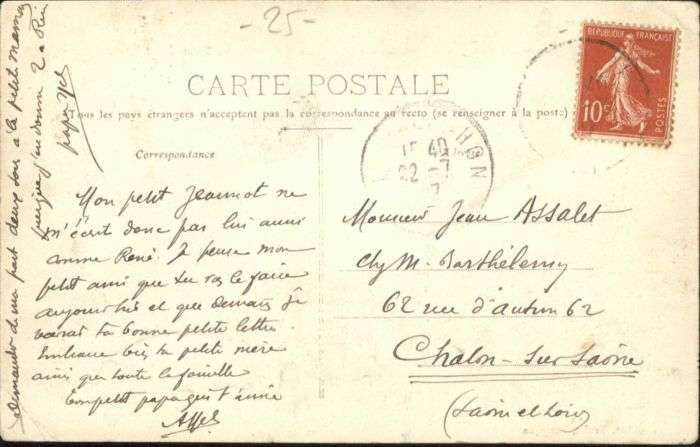 - 25 -
CARTE POSTALE
Tous les pays étrangers n'acceptent pas la correspondance au recto (se renseigner à la poste)
Correspondance
Mon petit Jeannot ne
m'écrit donc pas lui aussi
comme René. Je pense mon
petit ami que tu vas le faire
aujourd'hui et que demain j'
aurai ta bonne petite lettre.
Embrasse bien ta petite mère
ainsi que toute la famille
ton petit papa qui t'aime
Demander de ma part deux sous à la petite maman
j'en donne 2 à René
papa
REPUBLIQUE FRANÇAISE
10c
HON
15 40
22 - 7
Monsieur Jean Assalet
Chez M. Barthélemy
62 rue d'autun 62
Chalon-sur-Saône
(Saône et Loire)